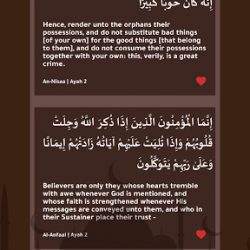 إِنَّهُ كَانَ حُوبًا كَبِيرًا
Hence, render unto the orphans their
possessions, and do not substitute bad things
[of your own] for the good things [that belong
to them], and do not consume their possessions
together with your own: this, verily, is a great
crime.
An-Nisaa | Ayah 2
إِنَّمَا الْمُؤْمِنُونَ الَّذِينَ إِذَا ذُكِرَ اللَّهُ وَجِلَتْ
قُلُوبُهُمْ وَإِذَا تُلِيَتْ عَلَيْهِمْ آيَاتُهُ زَادَتْهُمْ إِيمَانًا
وَعَلَىٰ رَبِّهِمْ يَتَوَكَّلُونَ
Believers are only they whose hearts tremble
with awe whenever God is mentioned, and
whose faith is strengthened whenever His
messages are conveyed unto them, and who in
their Sustainer place their trust -
Al-Anfaal | Ayah 2